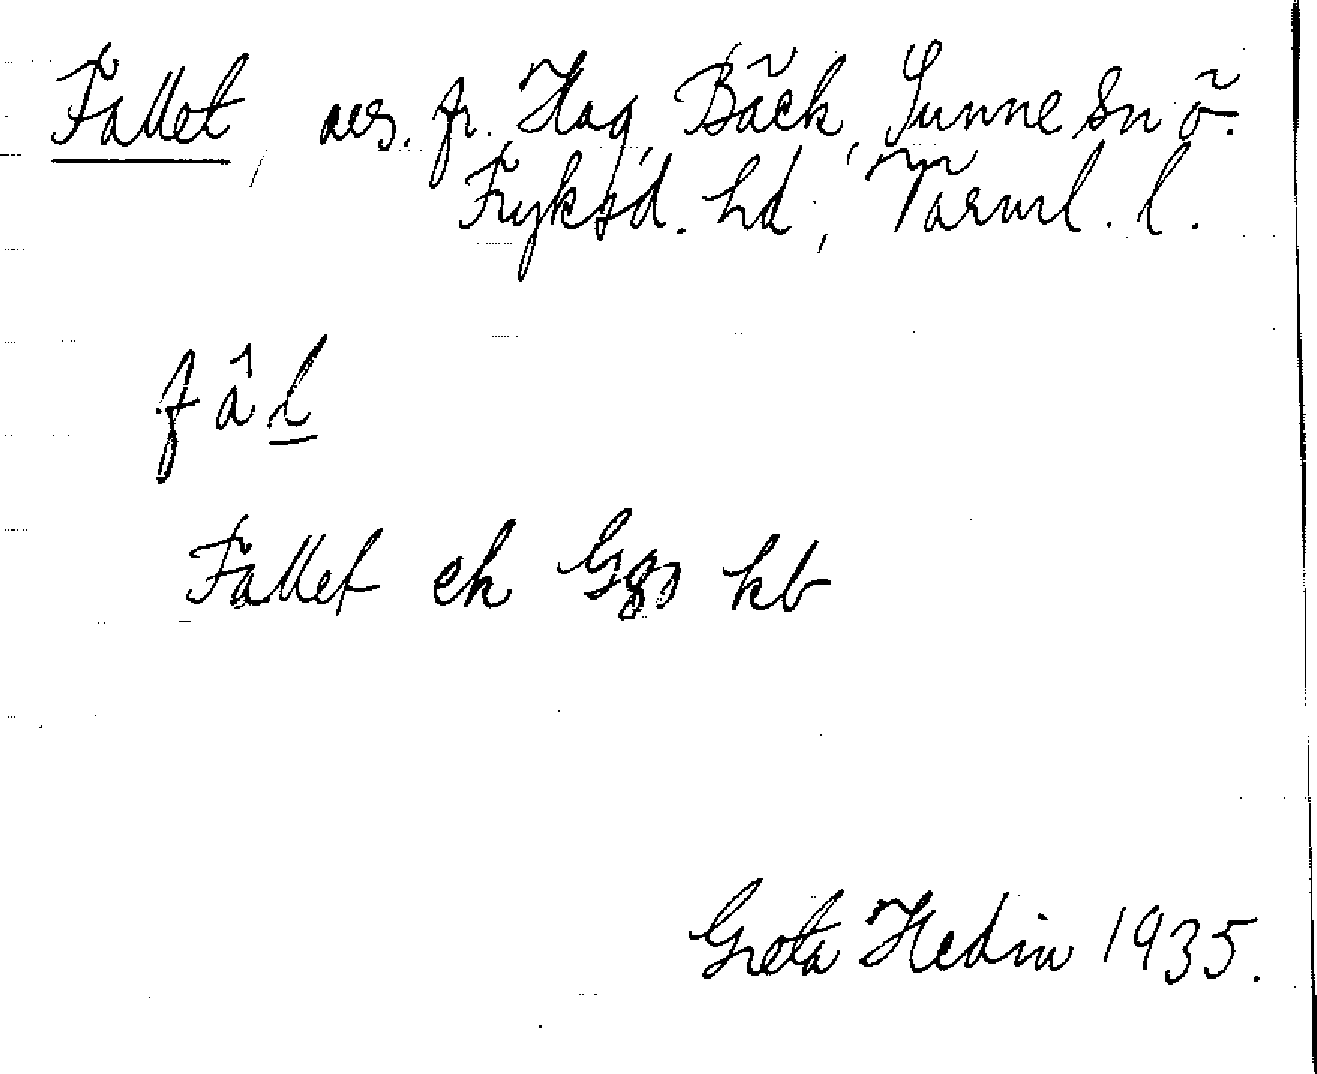 Fallet, avs. fr. Hag, Bäck, Sunne sn ö.
Fryksd. hd, Värml. l.
fâl
Fallet ek Ggs kb
Greta Hedin 1935.